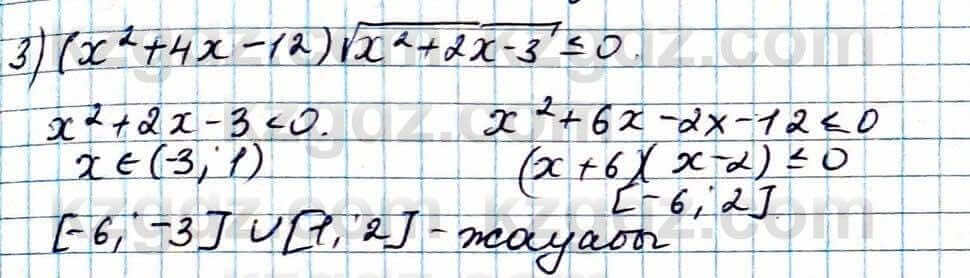 3) (x² + 4x - 12) √(x² + 2x - 3) ≤ 0.
x² + 2x - 3 < 0. x² + 6x - 2x - 12 ≤ 0
x ∈ (-3; 1) (x + 6)(x - 2) ≤ 0
[-6; 2].
[-6; -3] ∪ [1; 2] - жауабы